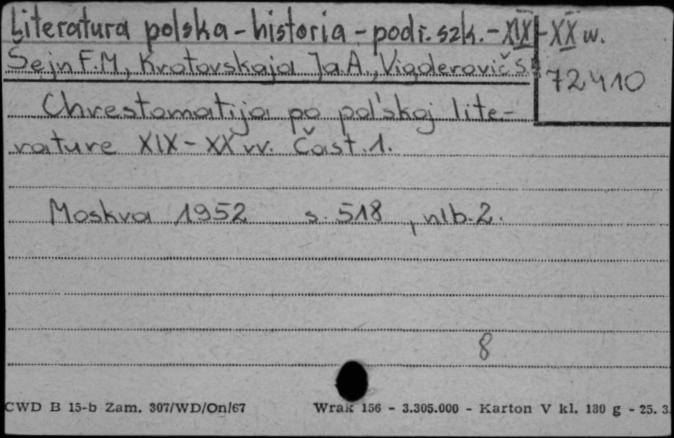 Literatura polska - historia - podr. szk. - XIX - XX w.
Sejn F.M., Krotovskaja Ja.A., Vigderovič S.
72410
Chrestomatija po pol'skoj lite-
rature XIX - XX vv. Čast. 1.
Moskva 1952 s. 518, nlb. 2.
8
CWD B 15-b Zam. 307/WD/On/67 Wrak 156 - 3.305.000 - Karton V kl. 180 g - 25. 3.